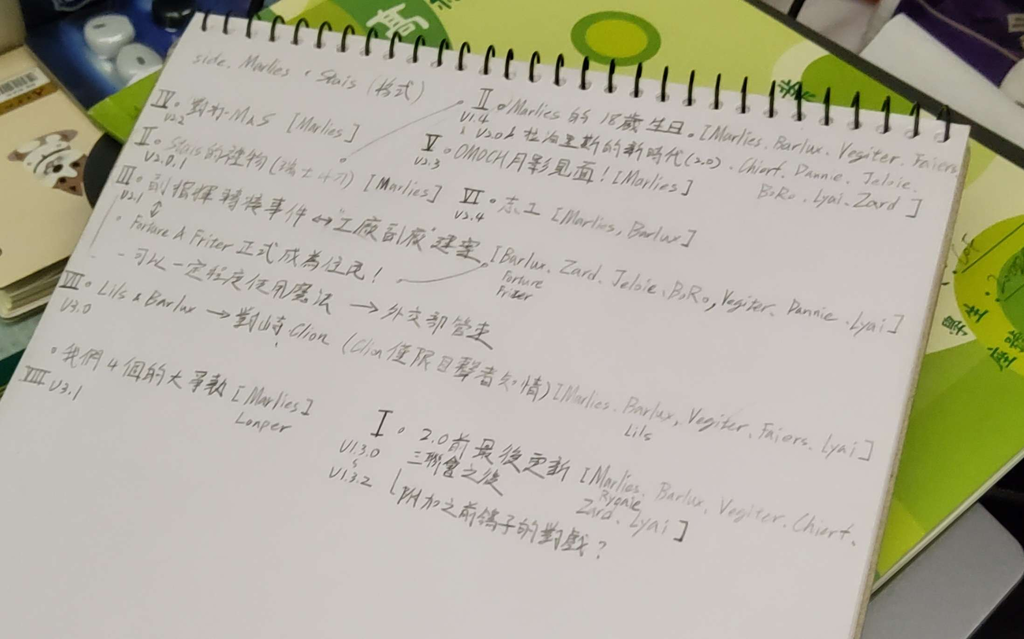 side. Marlies、Stais (格式)
IV。對打-MAS [Marlies]
V2.2
II。Stais的禮物(瑞士刀) [Marlies]
V2.0.1
III。副指揮轉換事件↔"工廠副廠"建案
V2.1
[Barlux、Zard、Jelsie、BoRo, Vegiter、Dannie、Lyai]
Forture
Friter
。Forture & Friter 正式成為住民!
-可以一定程度使用魔法 →外交部管走
II。Marlies的18歲生日。[Marlies、Barlux、Vegiter、Faiers
V1.4
V2.0 的新時代(2.0)、Chiert、Dannie、Jelsie、
BoRo、Lyai、Zard ]
V。OMOCH月影見面! [Marlies]
V2.3
VI。志工 [Marlies, Barlux]
V2.4
VII。Lils & Barlux → 對峙 Clion (Clion僅限目擊者知情) [Marlies、Barlux, Vegiter、Faiers、Lyai]
V3.0
Lils
。我們4個的大尋執 [Marlies]
VIII V3.1
Lonper
I。2.0前最後更新 [Marlies、Barlux、Vegiter、Chiert、
V1.3.0
三聯會之後
Rygnie
Zard、Lyai]
V1.3.2
PH加之前鴿子的對戲?